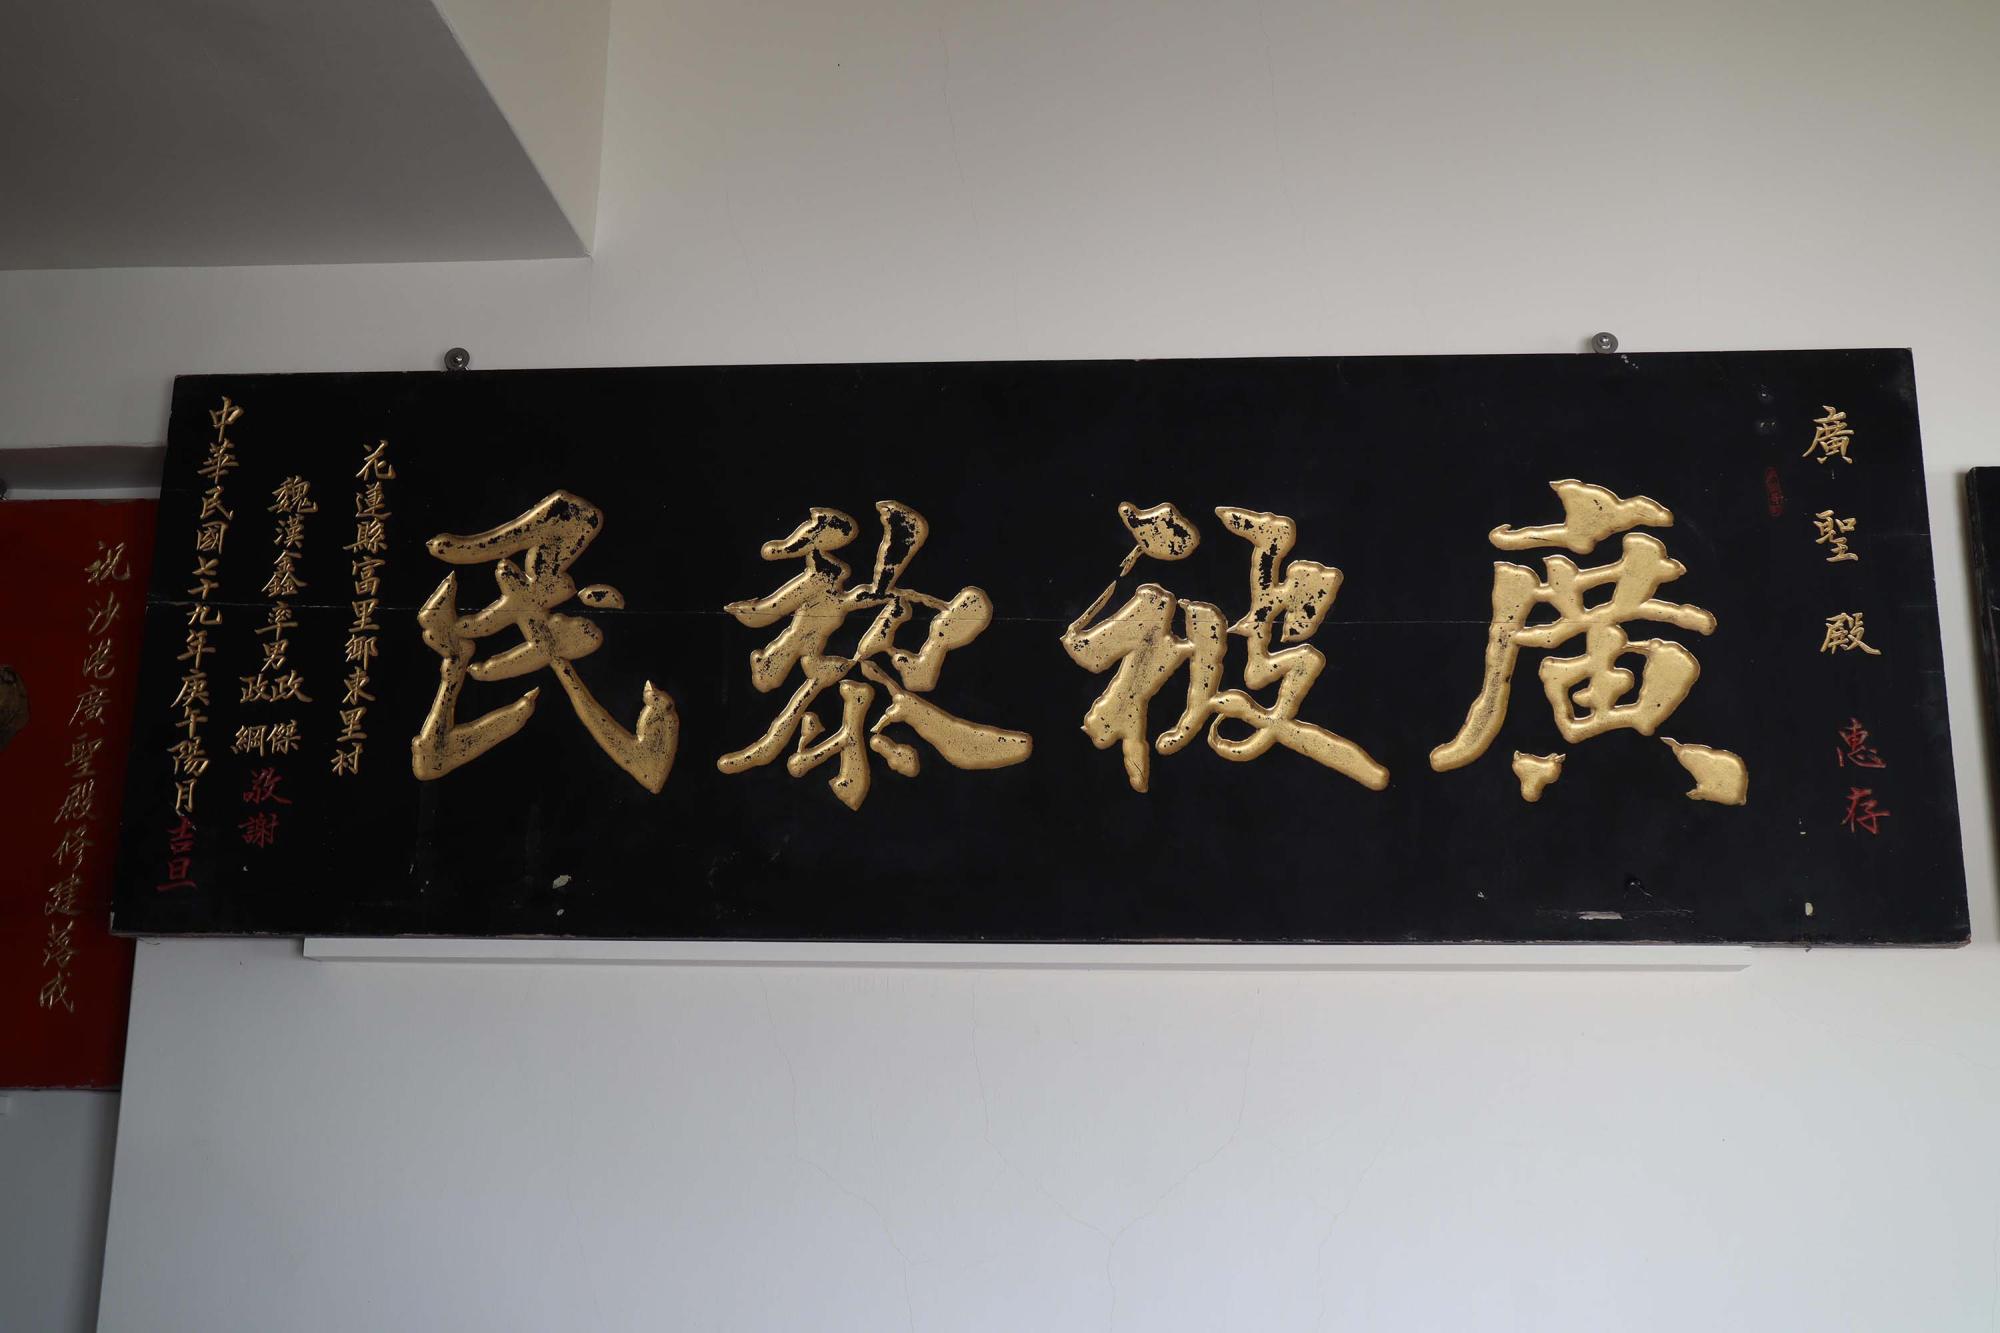 廣聖殿 惠存
廣被黎民
花蓮縣富里鄉東里村
魏漢鑫率男政傑
政綱
敬謝
中華民國七十九年庚午陽月吉旦
祝沙港廣聖殿修建落成